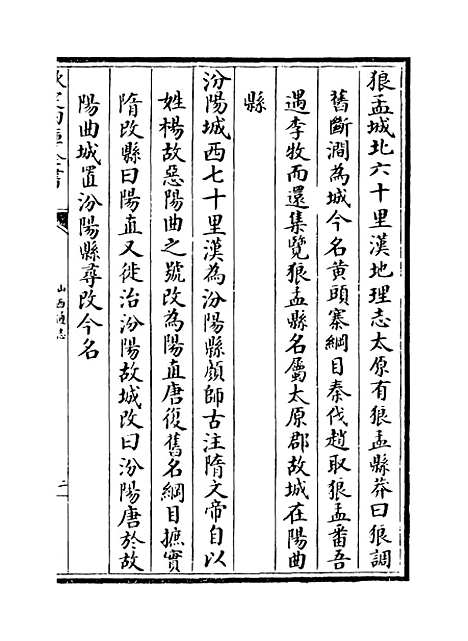 狼孟城北六十里漢地理志太原有狼孟縣莽曰狼調
舊斷澗為城今名黄頭寨綱目秦伐趙取狼孟番吾
遇李牧而還集覽狼孟縣名屬太原郡故城在陽曲
縣
汾陽城西七十里漢為汾陽縣顔師古注隋文帝自以
姓楊故惡陽曲之號改為陽直唐復舊名綱目摭實
隋改縣曰陽直又徙治汾陽故城改曰汾陽唐於故
陽曲城置汾陽縣尋改今名
山西通志
二